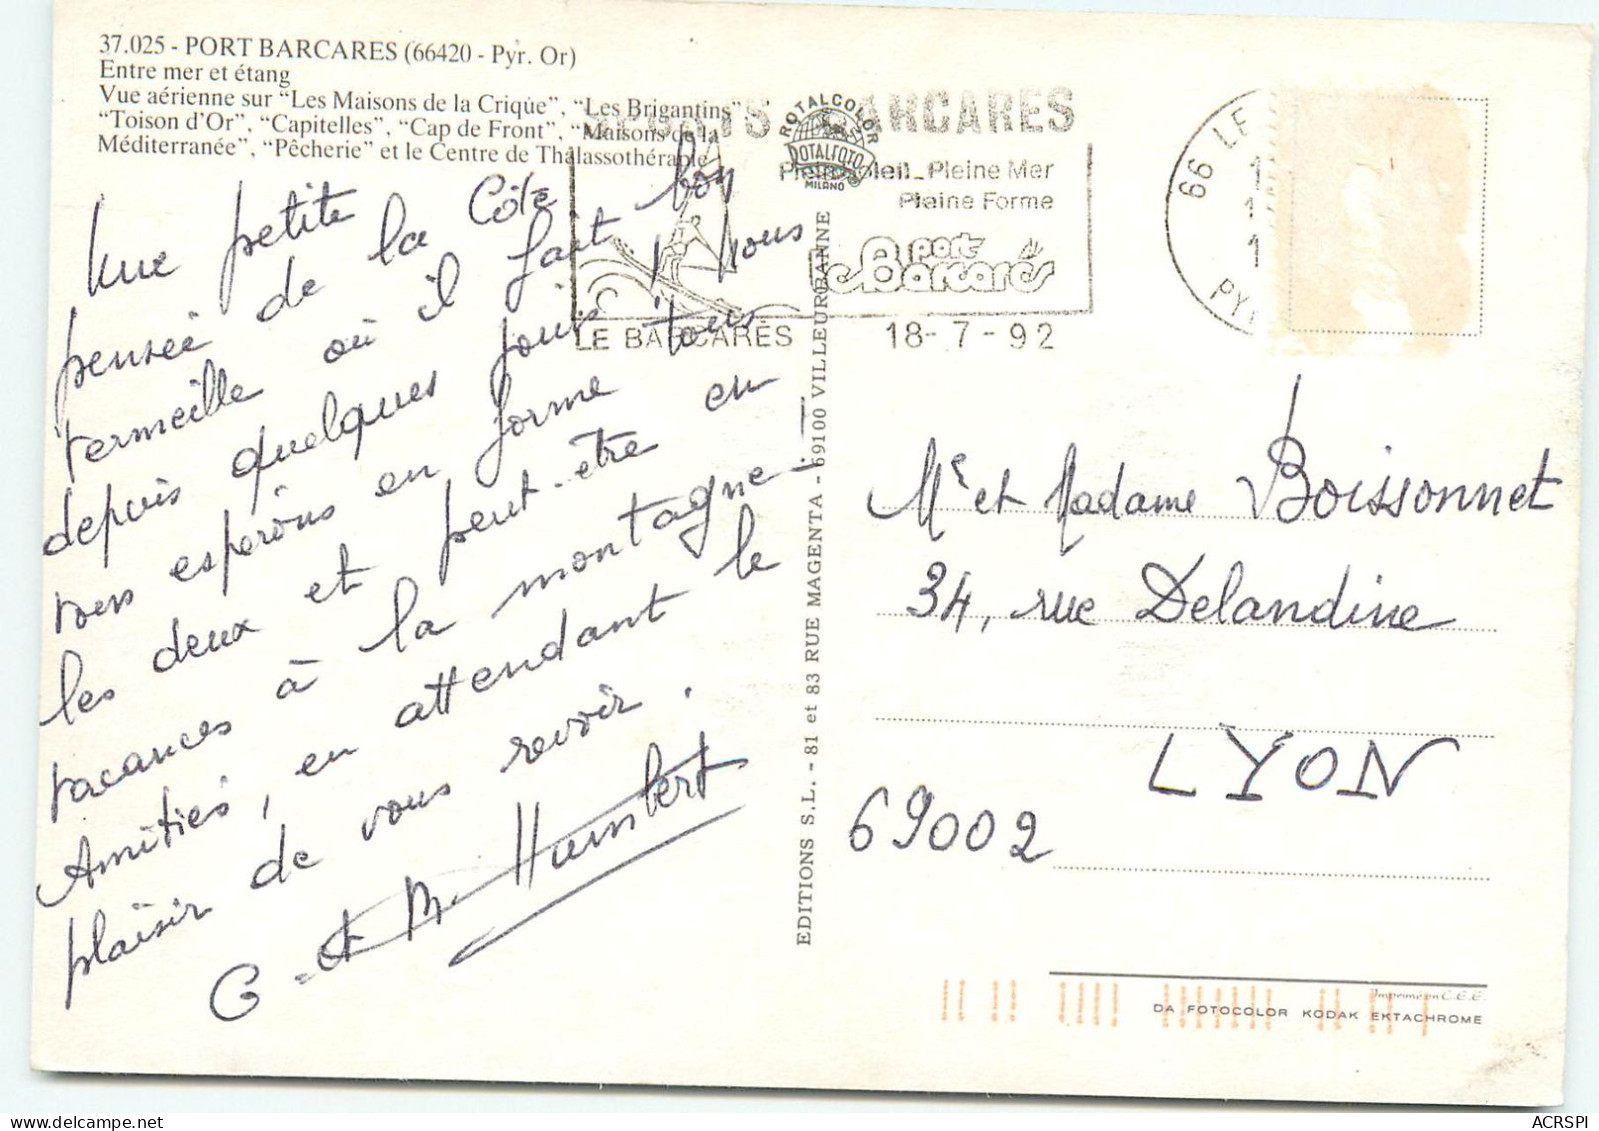 37.025 - PORT BARCARES (66420 - Pyr. Or)
Entre mer et étang
Vue aérienne sur “Les Maisons de la Crique”, “Les Brigantins”
“Toison d'Or”, “Capitelles”, “Cap de Front”, “Maisons de la
Méditerranée”, “Pêcherie” et le Centre de Thalassothérapie
Une petite
pensée de la Côte
vermeille où il fait bon
depuis quelques jours, nous
vous espérons en forme tous
les deux et peut-être en
vacances à la montagne !
Amitiés, en attendant le
plaisir de vous revoir.
G et M Humbert
BARCARES
ROTALCOLOR
ROTALFOTO
MILANO
Plein Soleil - Pleine Mer
Pleine Forme
port
le Barcarés
LE BARCARÈS 18-7-92
66 LE
PY
EDITIONS S.L. - 81 et 83 RUE MAGENTA - 69100 VILLEURBANNE
Mr et Madame Boissonnet
34, rue Delandine
LYON
69002
Imprimé en C.E.E.
DA FOTOCOLOR KODAK EKTACHROME
ACRSPI